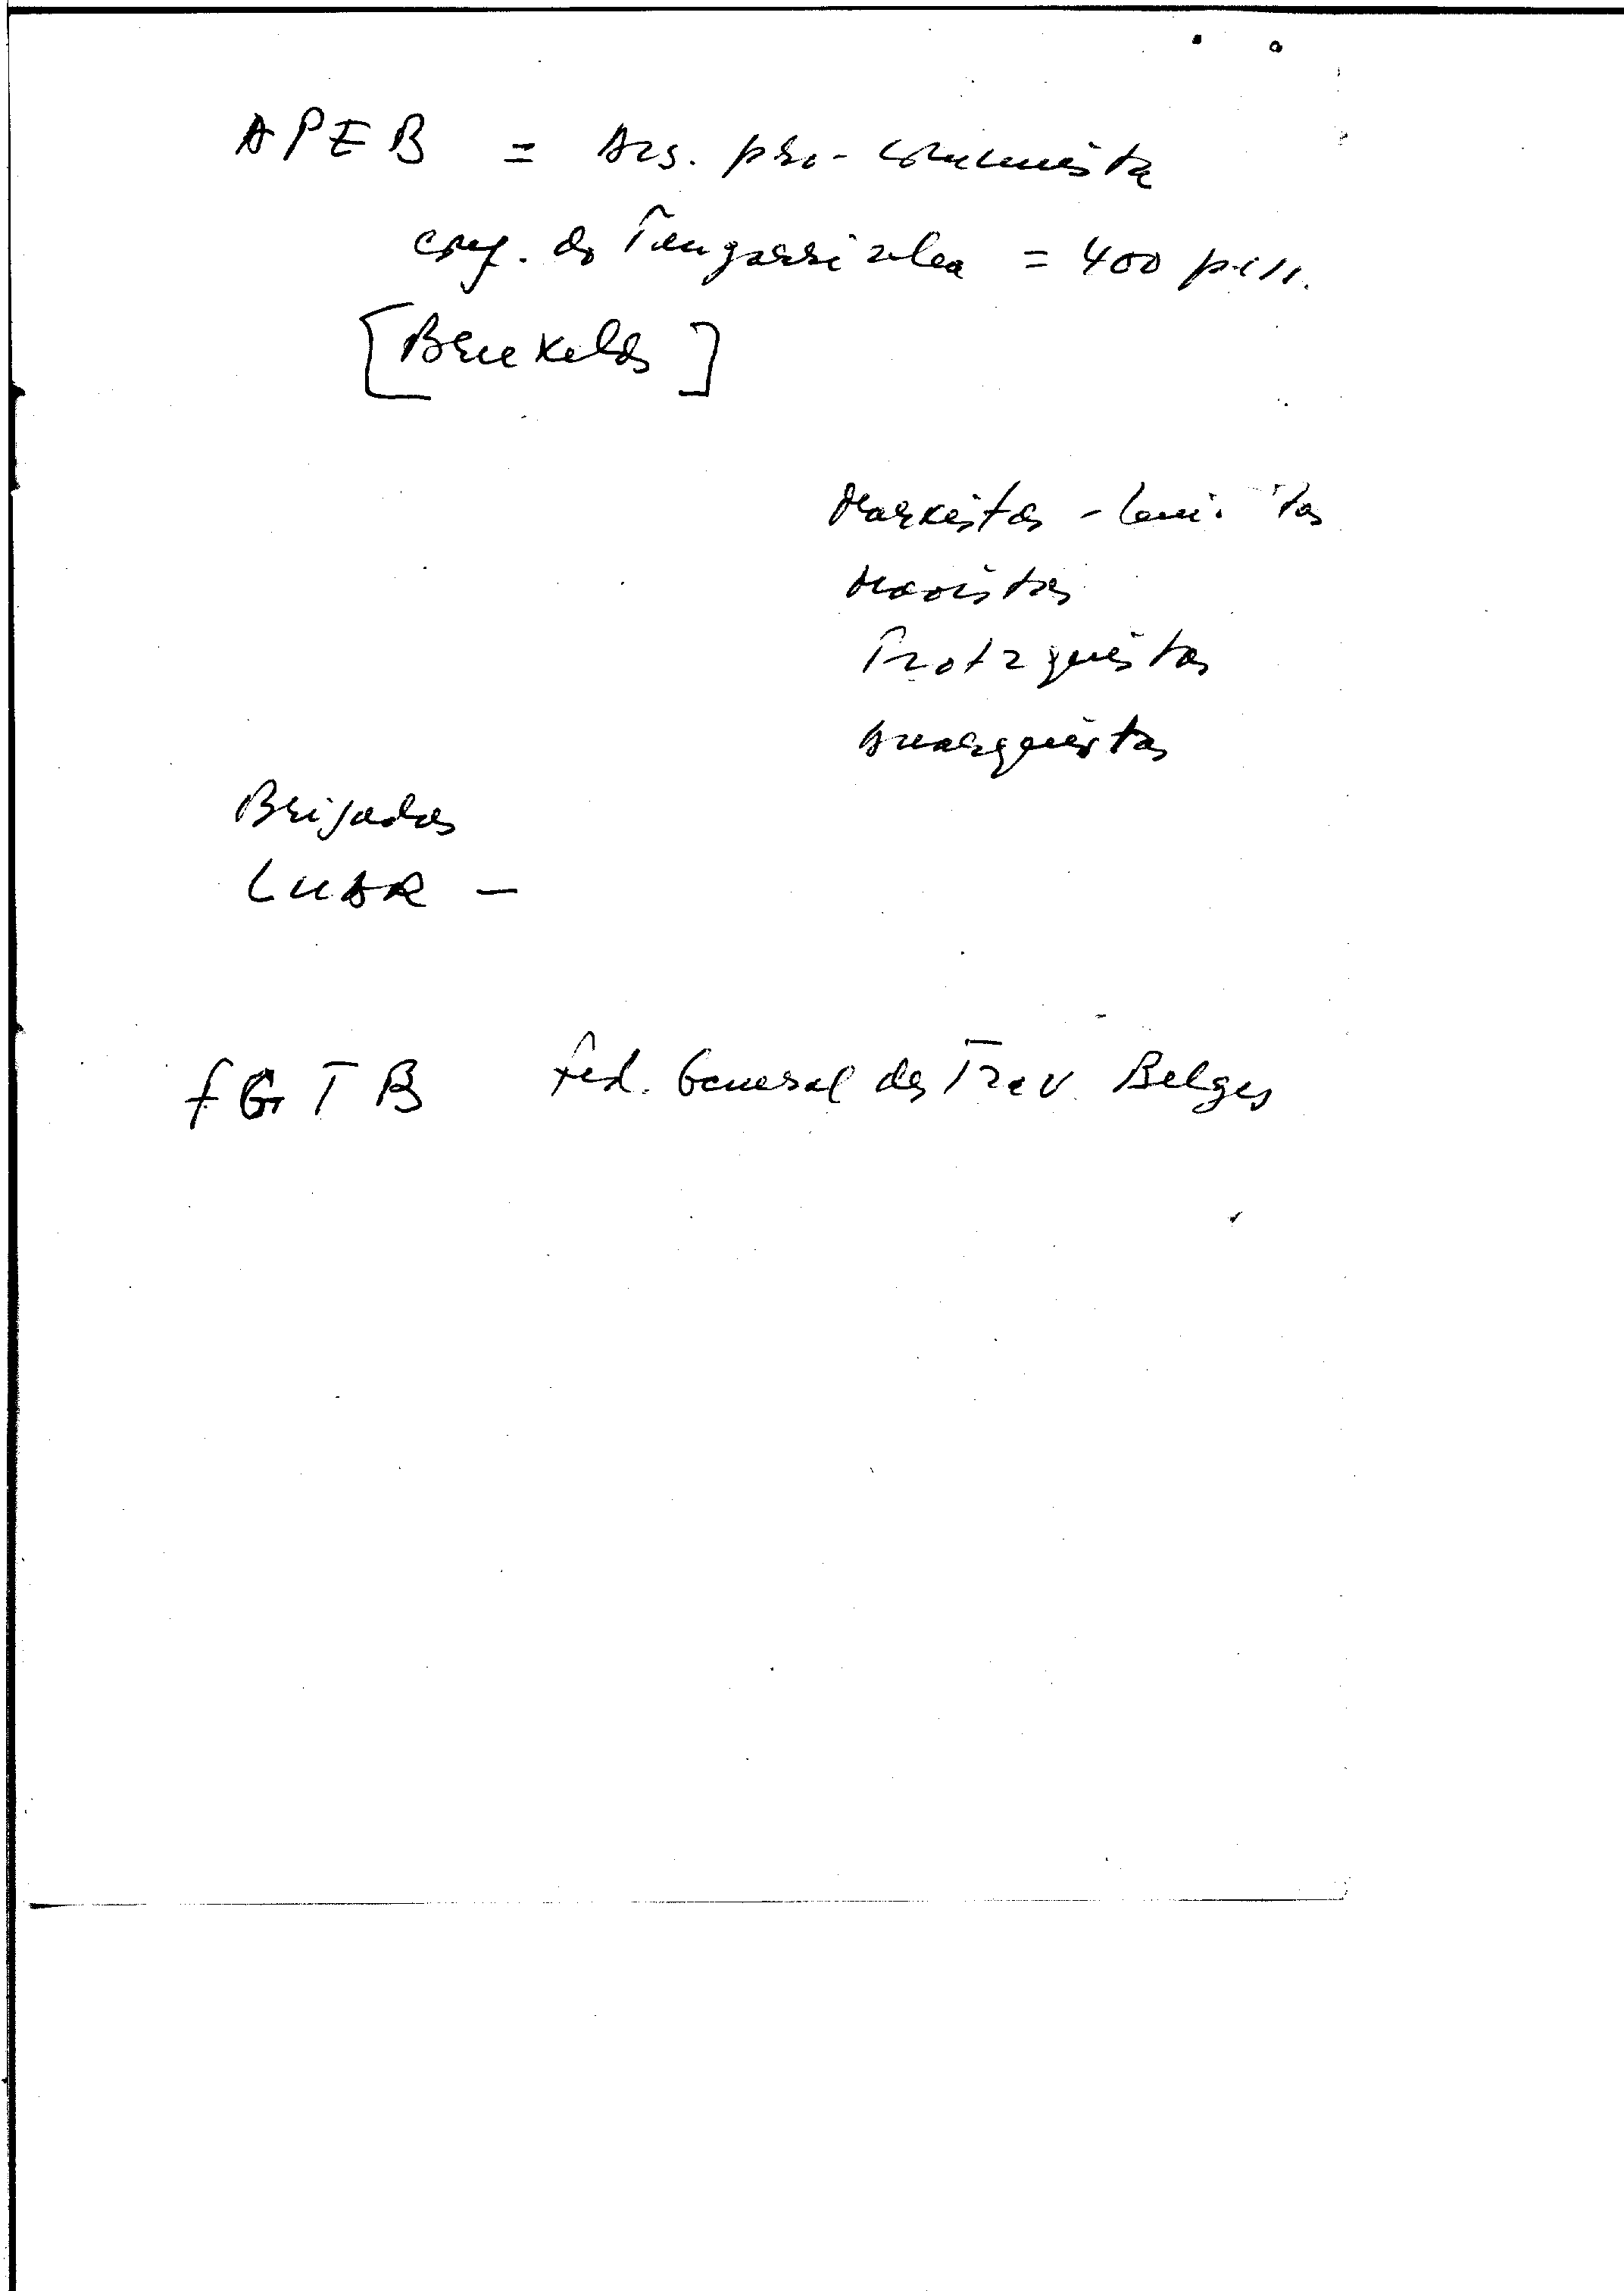 APEB = Org. pro-comunista
conf. do Tengarrinha = 400 pess.
[Bruxelas]
Marxistas - leni tas
Maoistas
Trotzquistas
Anarquistas
Brigadas
LUAR -
FGTB Fed. General des Trav. Belges